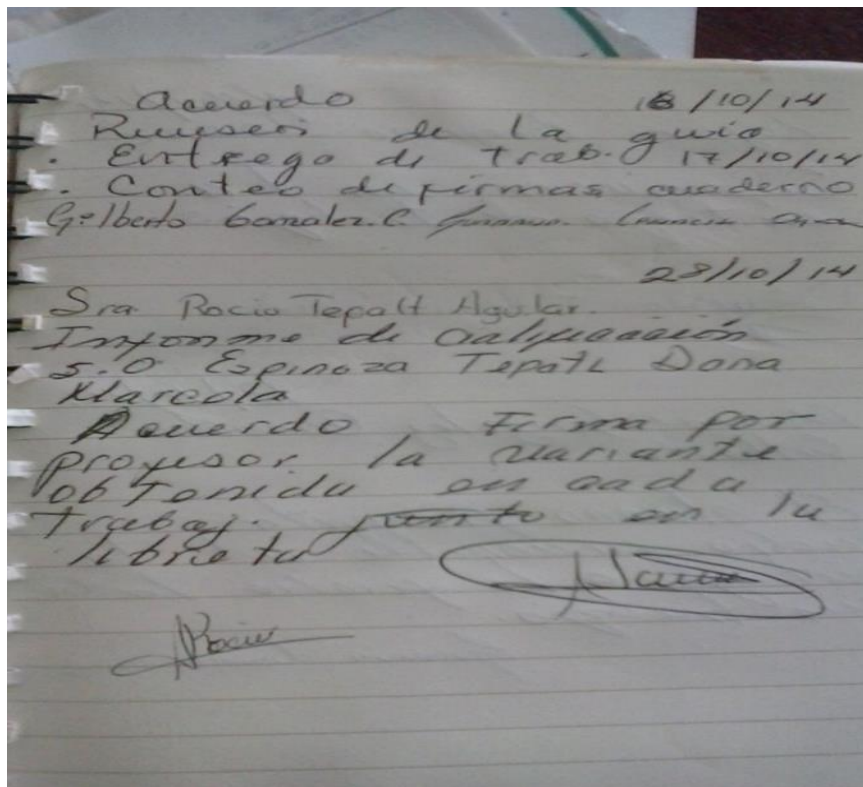 Acuerdo 16/10/14
Revision de la guia
. Entrega de trab. 17/10/14
. Conteo de firmas cuaderno
Gilberto Gonzalez. C.
28/10/14
Sra. Rocio Tepatt Aguilar.
Informe de calificación
5.0 Espinoza Tepatl Dana
Marcela
Acuerdo Firma por
profesor la variante
obtenida en cada
trabaj. junto en la
libreta
Rocio